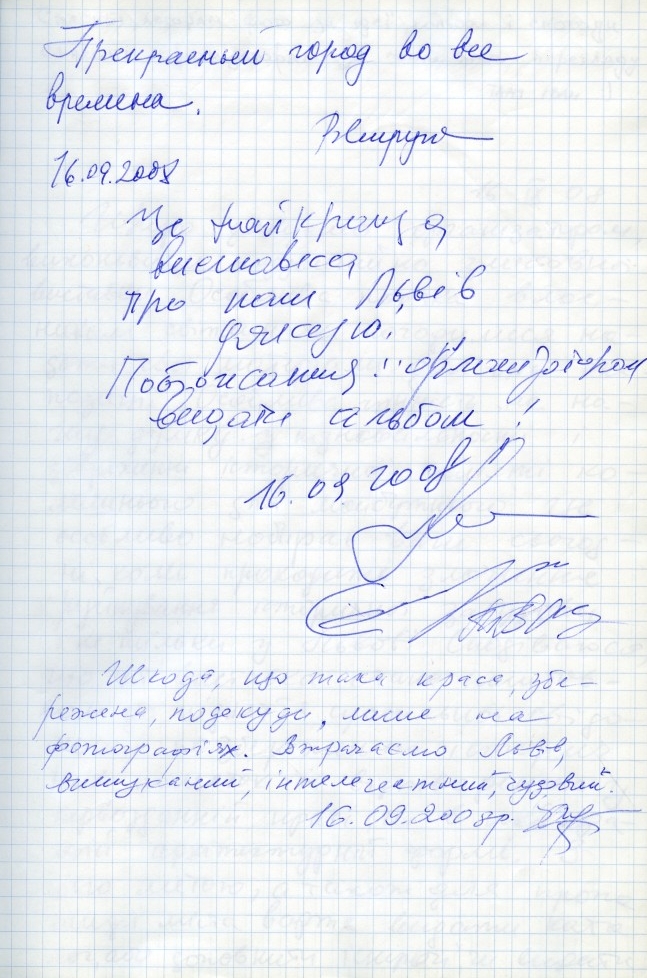 Прекрасный город во все
времена.
16.09.2008
Це найкраща
виставка
про наш Львів
дякую!
Побажання організаторам
видати альбом!
16.09.2008
Шкода, що така краса, збе-
режена, подекуди, лише на
фотографіях. Втрачаємо Львів,
вишуканий, інтелегентний, чудовий.
16.09.2008р.